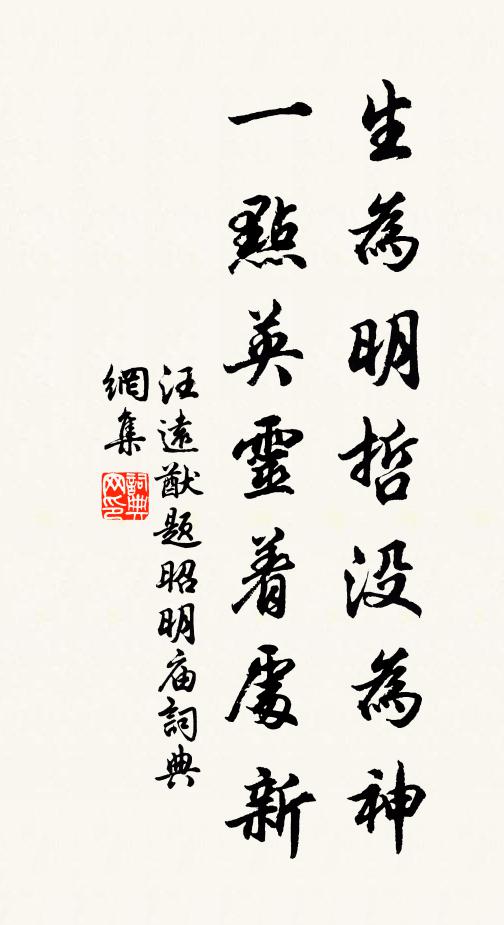 生為明哲没為神
一點英靈着處新
汪遠猷题昭明庙詞典
網集
詞典
网印